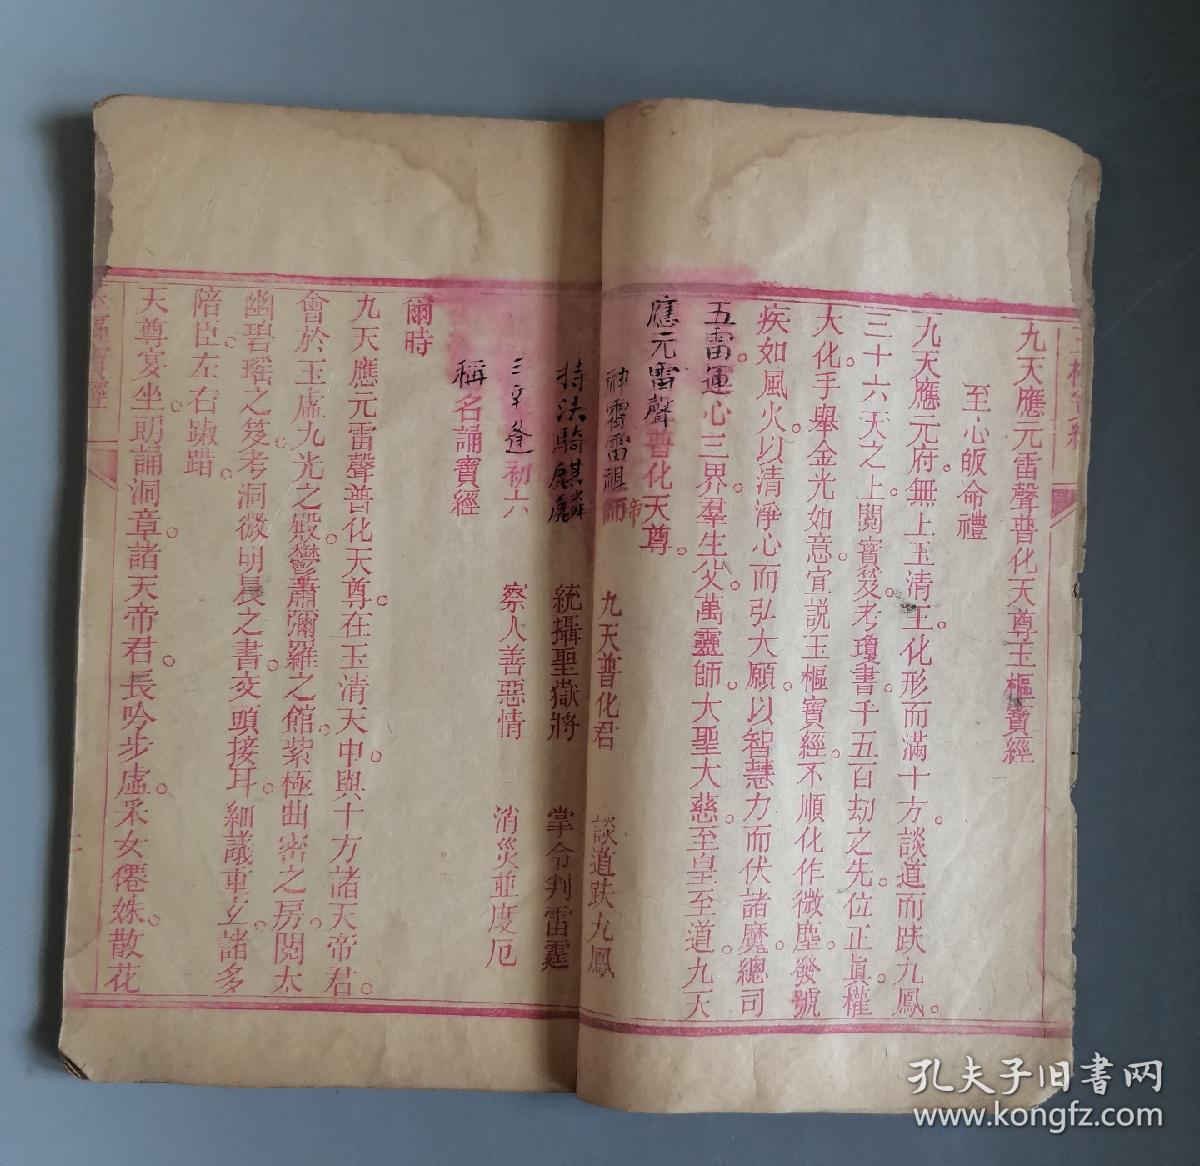 九天應元雷聲普化天尊玉樞寶經
至心皈命禮
九天應元府。無上玉清王。化形而滿十方。談道而趺九鳳。
三十六天之上。閱寶笈。考瓊書。千五百劫之先。位正眞。權
大化。手舉金光如意。宣説玉樞寶經。不順化作微塵。發號
疾如風火。以清淨心而弘大願。以智慧力而伏諸魔。總司
五雷。運心三界。羣生父。萬靈師。大聖大慈。至皇至道。九天
應元雷聲普化天尊。
神霄雷祖帝師 九天普化君 談道趺九鳳
持法騎麒麟 統攝聖嶽將 掌令判雷霆
三辛逢初六 察人善惡情
稱名誦寶經 消災並度厄
爾時
九天應元雷聲普化天尊。在玉清天中。與十方諸天帝君。
會於玉虛九光之殿。鬱蕭彌羅之館。紫極曲密之房。閱太
幽碧瑤之笈。考洞微明晨之書。交頭接耳。細議重玄。諸多
陪臣。左右踧踖。
天尊宴坐。朗誦洞章。諸天帝君。長吟步虛。采女僊姝。散花
孔夫子旧書网
www.kongfz.com